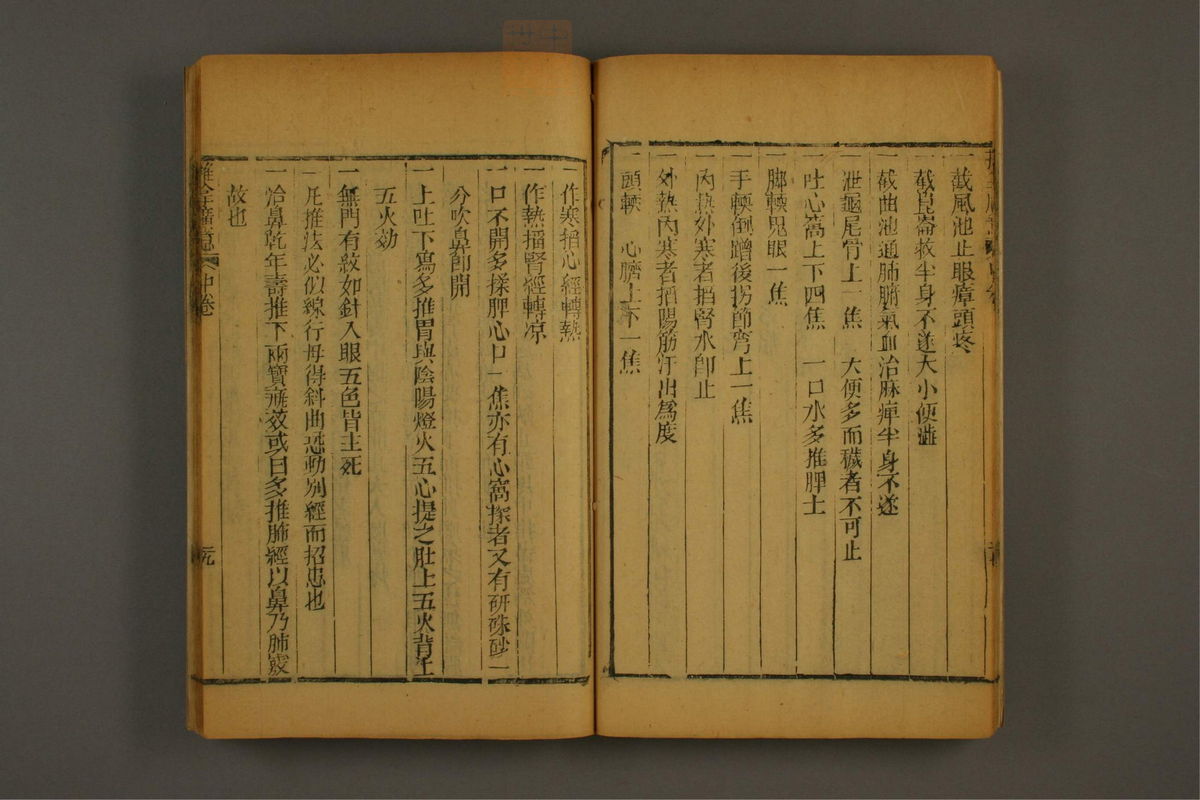 一截風池止眼瘴頭疼
一截崑崙救半身不遂大小便澁
一截曲池通肺腑氣血治麻痺半身不遂
一泄龜尾骨上一焦　大便多而穢者不可止
一吐心窩上下四焦　一口水多推脾土
一脚軟鬼眼一焦
一手軟倒蹭後拐節弯上一焦
一內熱外寒者掐腎水卽止
一外熱內寒者掐陽筋汗出爲度
一頭軟　心臍上下一焦
一作寒掐心經轉熱
一作熱掐腎經轉凉
一口不開多揉脾心口一焦亦有心窩揉者又有研硃砂一
分吹鼻卽開
一上吐下寫多推胃與陰陽燈火五心提之肚上五火背上
五火効
一無門有紋如針入眼五色皆主死
一凡推法必似線行母得斜曲恐動別經而招患也
一治鼻乾年壽推下兩寶痰效或曰多推肺經以鼻乃肺竅
故也
推全廣意　中卷
元